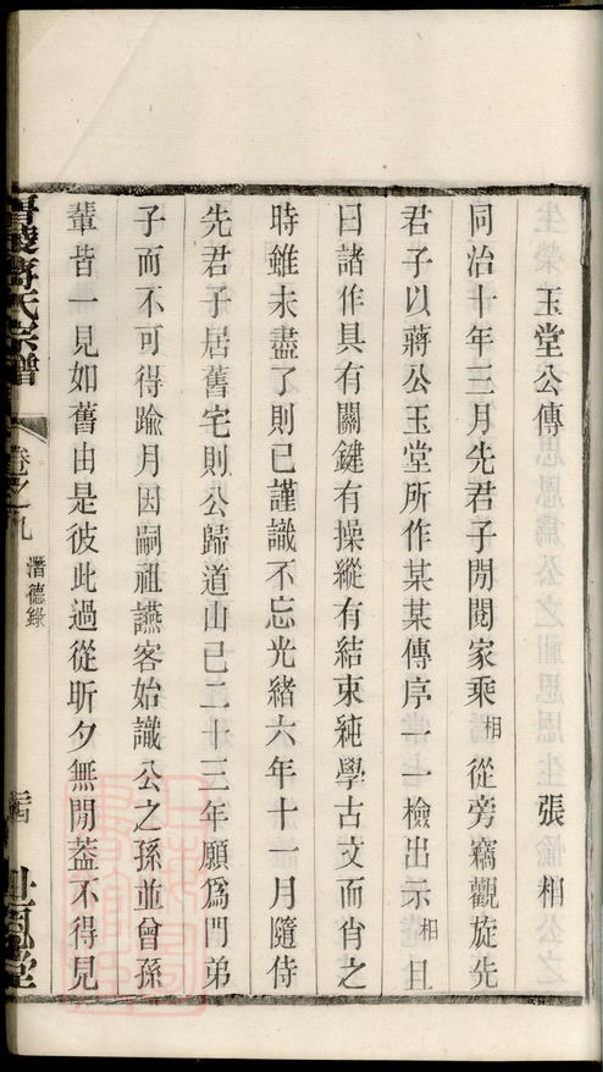 玉堂公傳　張相
同治十年三月先君子閒閱家乘相從旁竊觀旋先
君子以蔣公玉堂所作某某傳序一一檢出示相且
曰諸作具有關鍵有操縱有結束純學古文而肖之
時雖未盡了則已謹識不忘光緒六年十一月隨侍
先君子居舊宅則公歸道山已二十三年願爲門弟
子而不可得踰月因嗣祖讌客始識公之孫並曾孫
輩皆一見如舊由是彼此過從昕夕無閒葢不得見
蔣氏宗譜　卷之九　潛德錄